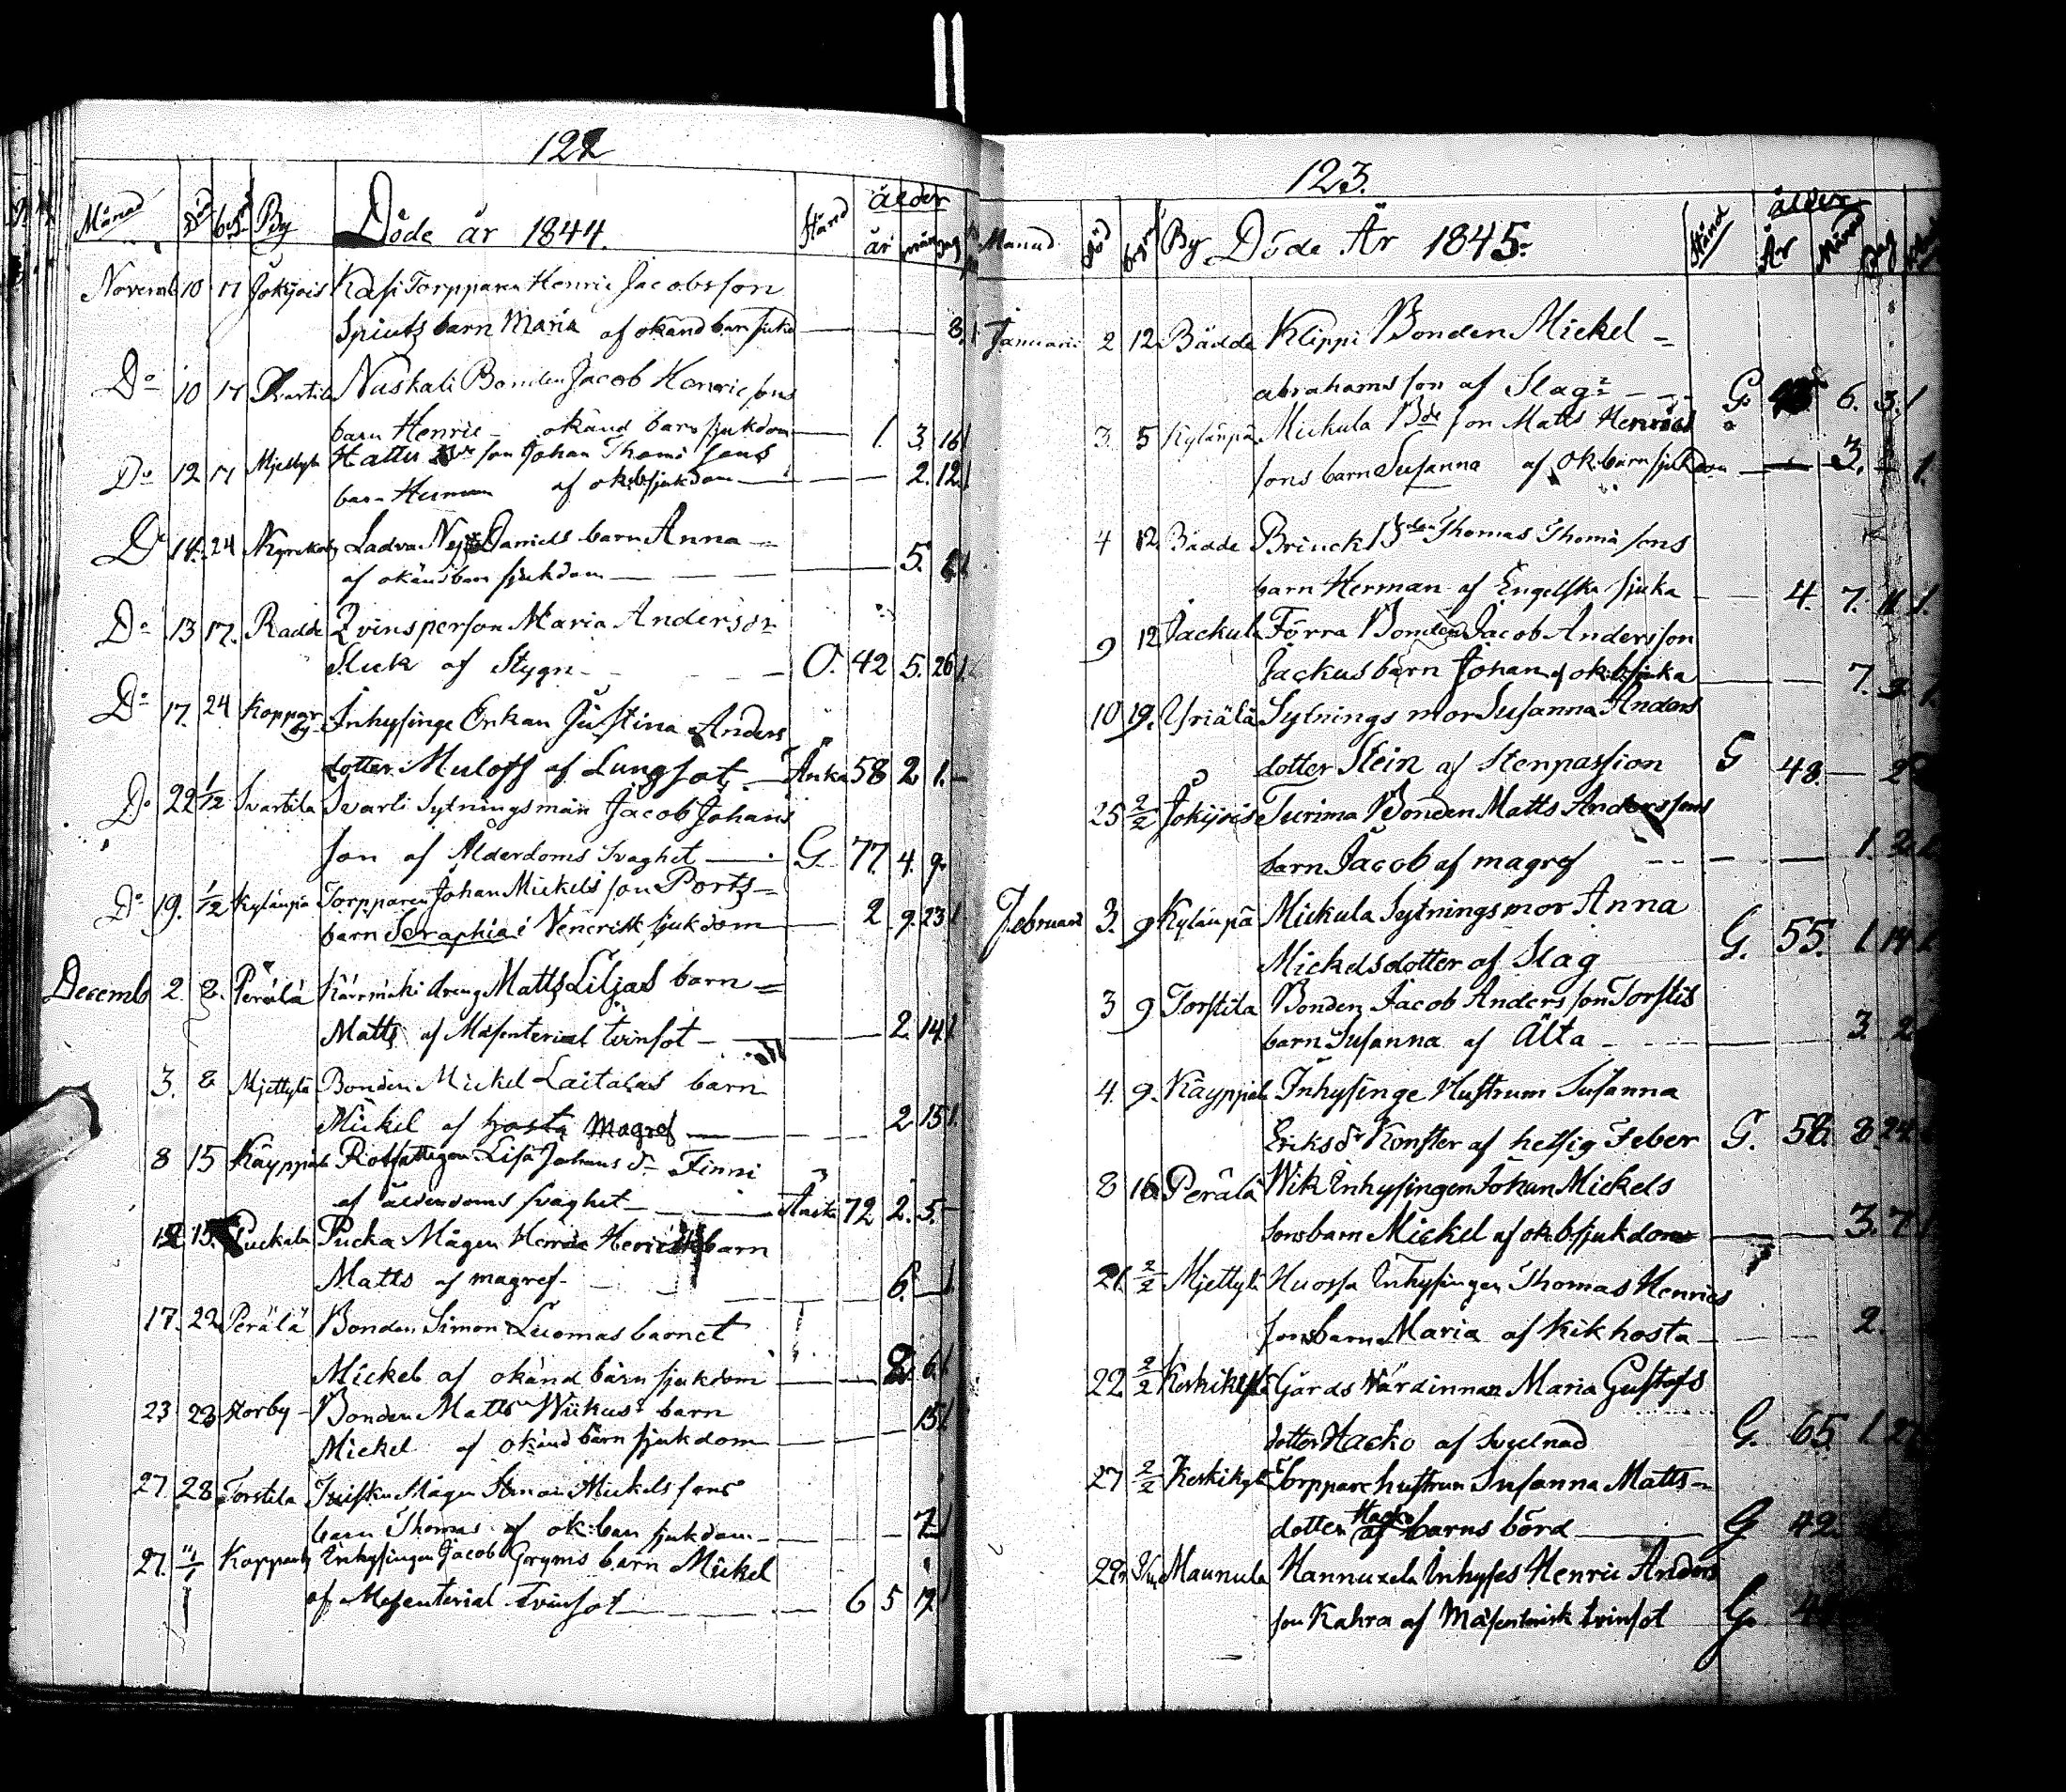 122
Månad Död begr By Döde år 1844. Stånd ålder
år mån dag
Novemb 10 17 Jokijois Kasi Torpparen Henric Jacobsson
barn Maria af okänd barnsjukd 8. 1
Do 10 17 Nuskali Bonden Jacob Henricsons
barn Henric okänd barnsjukdom 1. 3. 16 1
Do 12 17 Mjellylä Hattu son Johan Thomæ sons
barn Herman af ok.b.sjukdom 2. 12. 1
Do 14. 24 Ladva Daniels barn Anna
af okänd barn sjukdom 5.
Do 13 17. Radde Qvinsperson Maria Andersdr
Sluk af Stygn O. 42 5. 26 1.
Do 17. 24 Kopparby Inhysinge Enkan Justina Anders
dotter Muloff af Lungsot Änka 58 2 1.
Do 22 1/12 Svartila Svarti Sytningsman Jacob Johans
son af Ålderdoms Svaghet G. 77. 4. 9.
Do 19. 1/12 Kylänpä Torpparen Johan Mickelsson Ports
barn Seraphia i Venerisk sjukdom 2 9. 23 1
Decemb 2. 8. Perälä Kärrmäki dreng Matts Liljas barn
Matts af Mäsenterial tvinsot 2. 14. 1
3. 8 Mjellylä Bonden Mickel Laitalas barn
Mickel af hosta magref 2 15 1.
8 15 Käyppälä Rotfattigen Lisa Johans dr Finni
af ålderdoms svaghet Änka 72 2. 5.
12 15. Puckala Pucka Mågen barn
Matts af magref 6. 1
17. 22 Perälä Bonden Simon Luomas barnet
Mickel af okänd barnsjukdom 8. 6. 1
23 28 Storby Bonden Matts Wiikus barn
Mickel af okänd barnsjukdom 15 1.
27. 28 Torstila Mågen Simon Mickelssons
barn Thomas af ok: barn sjukdom 7. 1
27. 11/1 Kopparby Inhysingen Jacob Gryms barn Mickel
af Mesenterial tvinsot 6 5 12
123.
Månad död begr By Döde År 1845. Stånd ålder
År Månad Dag
Januari 2 12 Bädde Klippi Bonden Mickel
abrahamsson af Slag G. 6. 3. 1
3. 5 Kylänpä Mickula Bde son Matts Henrics
sons barn Susanna af ok.barnsjukdom 3. 1.
4 12. Bädde Brinck Bonden Thomas Thomæ sons
barn Herman af Engelska sjuka 4. 7. 11 1.
9 12 Jackula Förra Bonden Jacob Andersson
Jackus barn Johan af ok.b.sjuka 7. 2
10 19. Yriälä Sytnings mor Susanna Anders
dotter Stein af Stenpassion G 48.
25 2/2 Jokijois Turima Bonden Matts Anderssons
barn Jacob af magref 1. 2.
Februari 3. 9 Kylänpä Mickula Sytningsmor Anna
Mickelsdotter af Slag G. 55. 1. 14
3 9 Torstila Bonden Jacob Andersson Torstis
barn Susanna af Älta 3. 2
4. 9. Käyppälä Inhysinge Hustrun Susanna
Eriksdr Konster af hetsig Feber G. 56. 8 24
8 16 Perälä Wik Inhysingen Johan Mickels
sons barn Mickel af ok.b.sjukdom 3. 7.
21. 2/2 Mjellylä Huossa Inhysingen Thomas Henrics
sons barn Maria af Kikhosta 2.
22 2/2 Keskikylä Gårds Värdinnan Maria Gustafs
dotter Hacko af Svulnad G. 65. 1. 27
27 2/2 Keskikylä Torppare hustrun Susanna Matts
dotter Hacko af barns börd G 42.
Maunula Hannuxela Inhyses Henric Anders
son Kahra af Mäsenterisk tvinsot G.